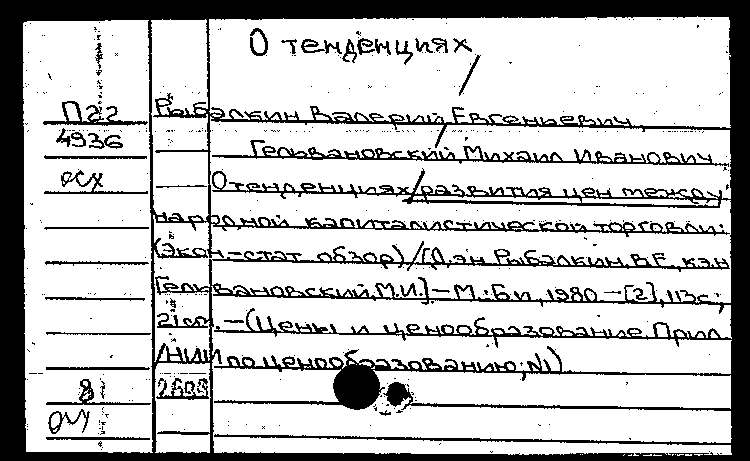 О тенденциях
П22 Рыбалкин, Валерий Евгеньевич,
4936 Гельвановский, Михаил Иванович
О тенденциях развития цен между-
народной капиталистической торговли:
(Экон.-стат обзор)/[Д.эн Рыбалкин, В.Е., к.эн
Гельвановский, М.И.] – М.: Б.и, 1980 – [2], 113с;
21см. – (Цены и ценообразование. Прил
/НИИ по ценообразованию; N1)
8